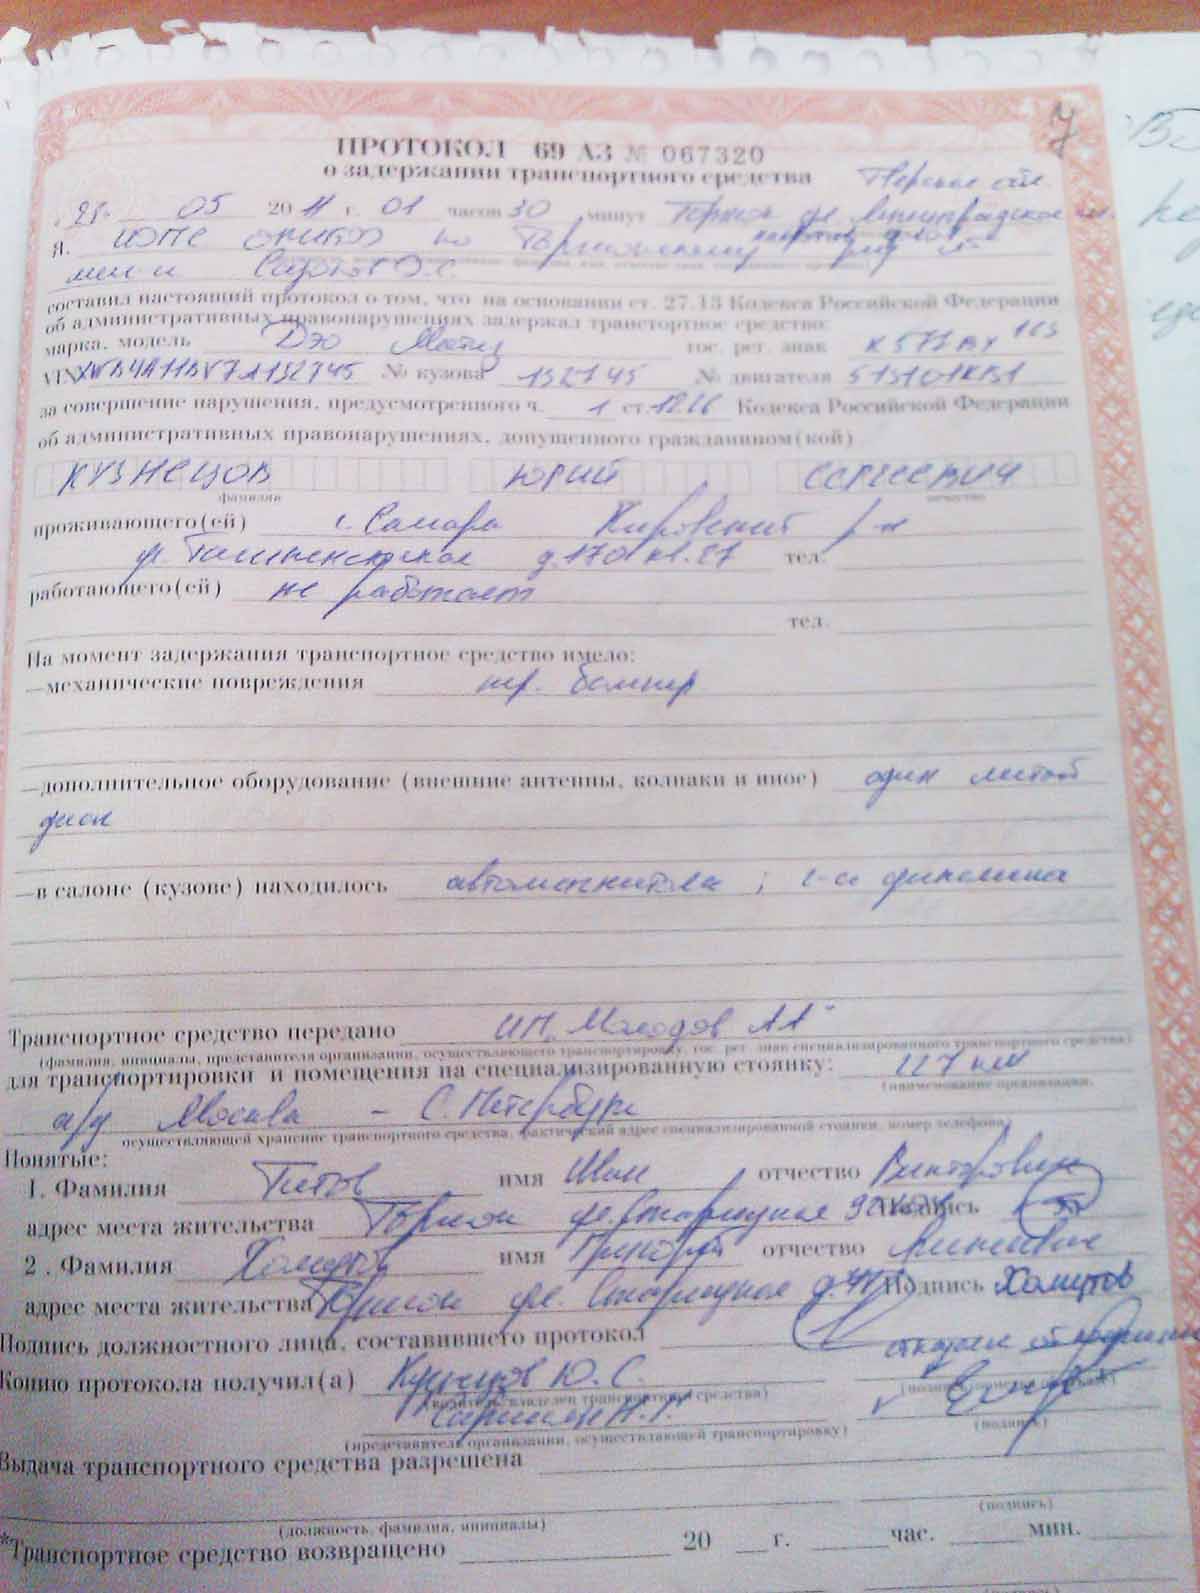 7
ПРОТОКОЛ 69 АЗ № 067320
о задержании транспортного средства
Тверская обл.
05 2011 г. 01 часов 30 минут Торжок ул. Ленинградское
Я, по Торжокскому
составил настоящий протокол о том, что на основании ст. 27.13 Кодекса Российской Федерации
об административных правонарушениях задержал транспортное средство:
марка, модель Дэо Матиз гос. рег. знак К 571 163
VIN XWB4A11BV7A132745 № кузова 132745 № двигателя
за совершение нарушения, предусмотренного ч. 1 ст. 12.26 Кодекса Российской Федерации
об административных правонарушениях, допущенного гражданином(кой)
КУЗНЕЦОВ ЮРИЙ СЕРГЕЕВИЧ
фамилия отчество
проживающего(ей) г. Самара Кировский р-н
ул. Ташкентская д. 170 кв. 87 тел.
работающего(ей) не работает
тел.
На момент задержания транспортное средство имело:
—механические повреждения пер. бампер
—дополнительное оборудование (внешние антенны, колпаки и иное) один литой
диск
—в салоне (кузове) находилось автомагнитола ; 2-а динамика
Транспортное средство передано ИП. Молодов АА
(фамилия, инициалы, представителя организации, осуществляющего транспортировку, гос. рег. знак специализированного транспортного средства)
для транспортировки и помещения на специализированную стоянку: 227 км
(наименование организации,
а/д Москва - С. Петербург
осуществляющей хранение транспортного средства, фактический адрес специализированной стоянки, номер телефона)
Понятые:
1. Фамилия Титов имя отчество Викторович
адрес места жительства Торжок ул. Старицкая Подпись
2 . Фамилия Хомутов имя Григорий отчество
адрес места жительства Торжок ул. Старицкая Подпись Хомутов
Подпись должностного лица, составившего протокол отказ от
Копию протокола получил(а) Кузнецов Ю. С.
(водитель, владелец транспортного средства)
(представитель организации, осуществляющей транспортировку) (подпись)
Выдача транспортного средства разрешена
(подпись)
(должность, фамилия, инициалы)
*Транспортное средство возвращено 20 г. час. мин.